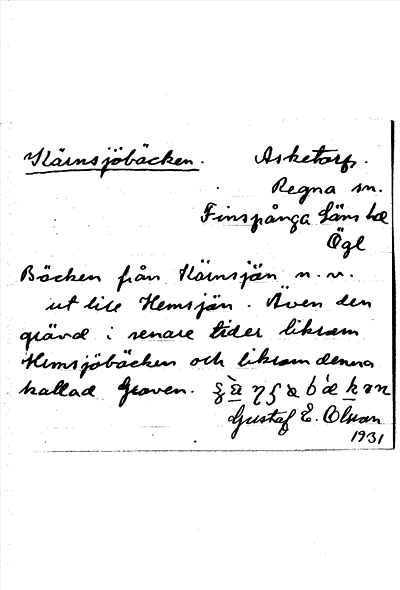 Kärnsjöbäcken. Asketorp.
Regna sn.
Finspånga läns hd
Ögl
Bäcken från Kärnsjön n. v.
ut till Hemsjön. Även den
grävd i senare tider liksom
Hemsjöbäcken och liksom denna
kallad Graven.
Gustaf E. Olsson
1931